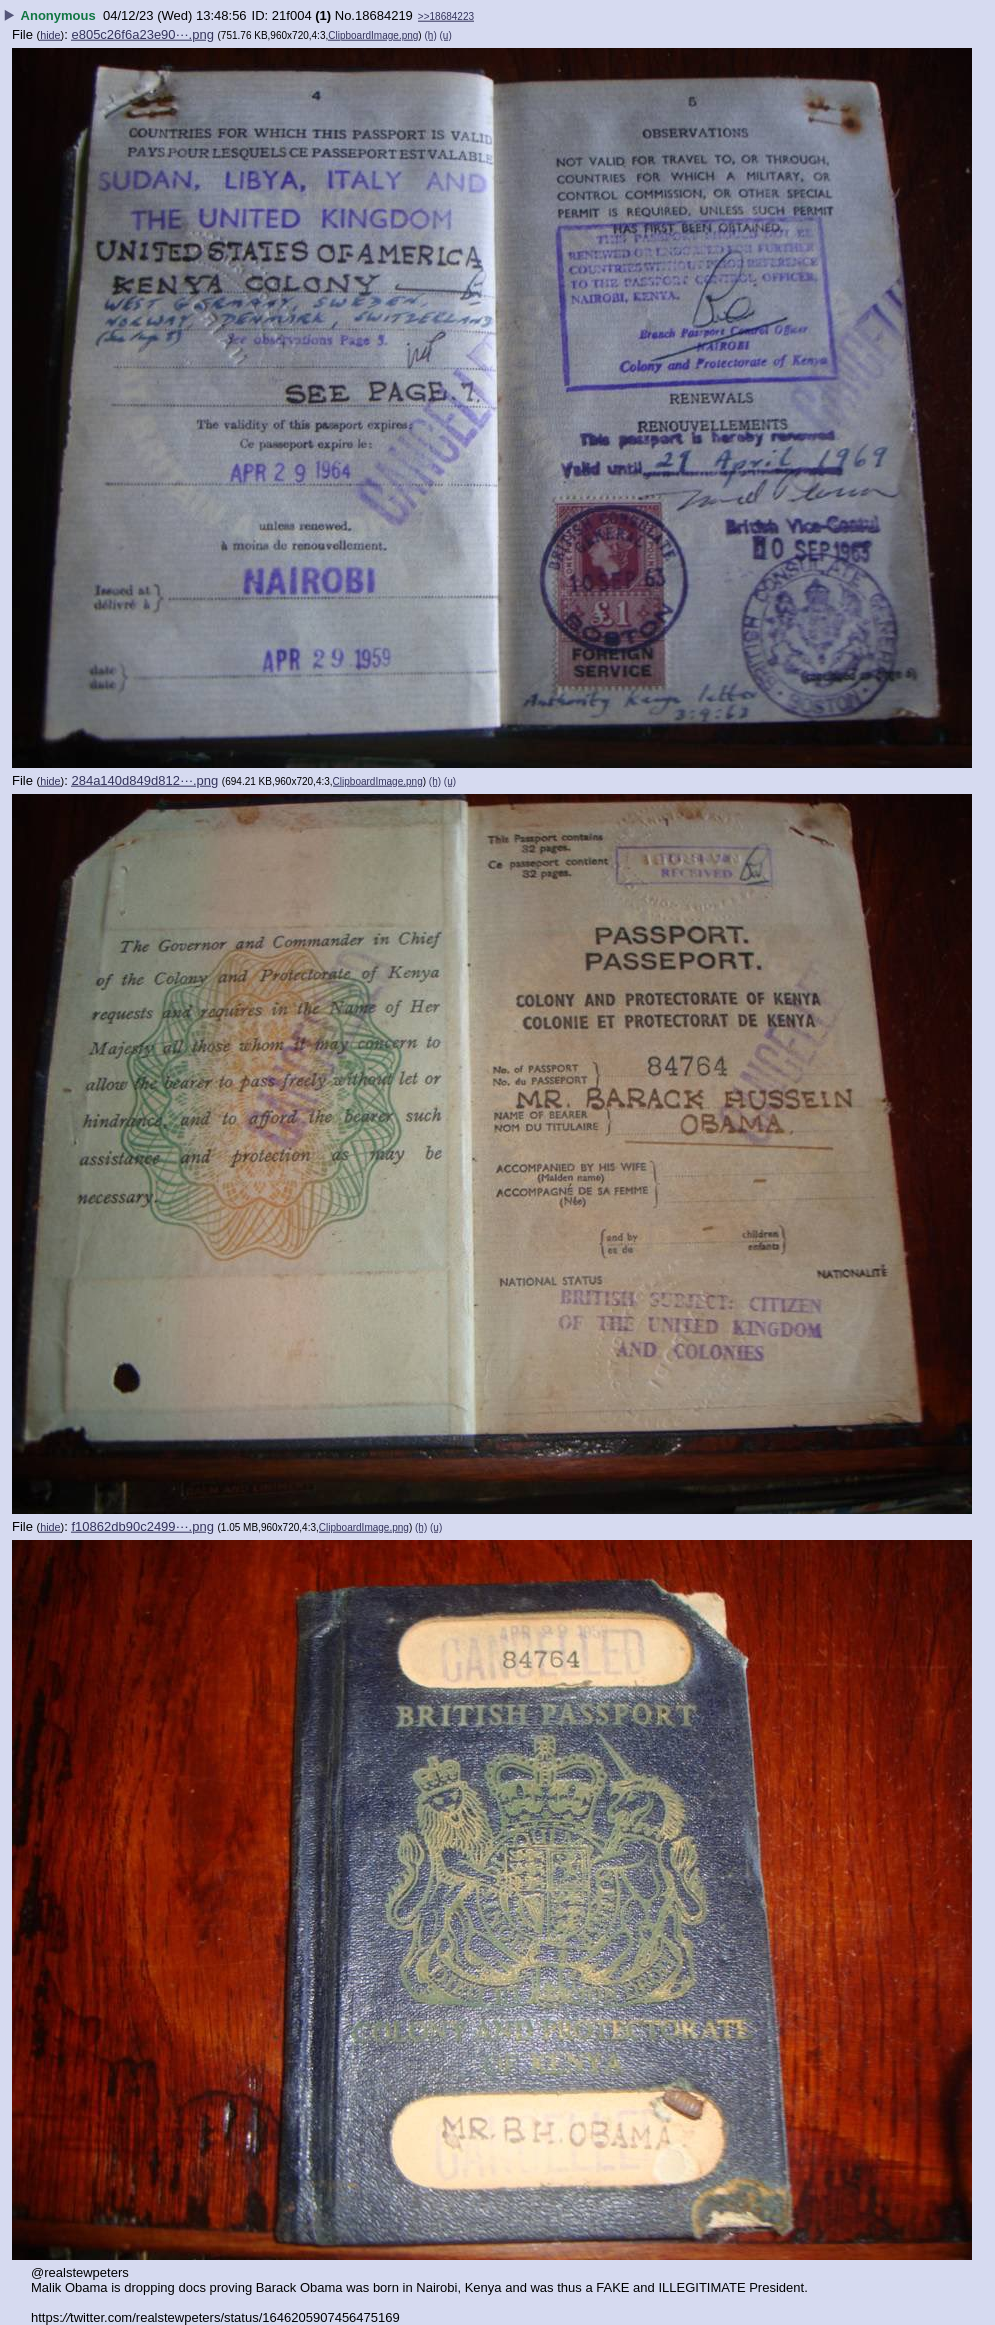 Anonymous 04/12/23 (Wed) 13:48:56 ID: 21f004 (1) No.18684219 >>18684223
File (hide): e805c26f6a23e90⋯.png (751.76 KB,960x720,4:3,ClipboardImage.png) (h) (u)
4
COUNTRIES FOR WHICH THIS PASSPORT IS VALID
PAYS POUR LESQUELS CE PASSEPORT EST VALABLE
SUDAN, LIBYA, ITALY AND
THE UNITED KINGDOM
UNITED STATES OF AMERICA
KENYA COLONY
WEST GERMANY, SWEDEN,
NORWAY, DENMARK, SWITZERLAND
See observations Page 5.
SEE PAGE.7.
CANCELLED
The validity of this passport expires:
Ce passeport expire le:
APR 29 1964
unless renewed.
à moins de renouvellement.
Issued at
délivré à
NAIROBI
date
date
APR 29 1959
5
OBSERVATIONS
NOT VALID FOR TRAVEL TO, OR THROUGH,
COUNTRIES FOR WHICH A MILITARY, OR
CONTROL COMMISSION, OR OTHER SPECIAL
PERMIT IS REQUIRED, UNLESS SUCH PERMIT
HAS FIRST BEEN OBTAINED.
THIS PASSPORT SHOULD NOT BE
RENEWED OR ENDORSED FOR FURTHER
COUNTRIES WITHOUT PRIOR REFERENCE
TO THE PASSPORT CONTROL OFFICER,
NAIROBI, KENYA.
Branch Passport Control Officer
NAIROBI
Colony and Protectorate of Kenya
CANCELLED
RENEWALS
RENOUVELLEMENTS
This passport is hereby renewed
Valid until 29 April 1969
British Vice-Consul
10 SEP 1963
BRITISH CONSULATE GENERAL
10 SEP 63
£1
BOSTON
FOREIGN
SERVICE
BRITISH CONSULATE GENERAL
BOSTON
Authority Kenya letter
3:9:63
File (hide): 284a140d849d812⋯.png (694.21 KB,960x720,4:3,ClipboardImage.png) (h) (u)
The Governor and Commander in Chief
of the Colony and Protectorate of Kenya
requests and requires in the Name of Her
Majesty all those whom it may concern to
allow the bearer to pass freely without let or
hindrance, and to afford the bearer such
assistance and protection as may be
necessary.
CANCELLED
This Passport contains
32 pages.
Ce passeport contient
32 pages.
RECEIVED
PASSPORT.
PASSEPORT.
COLONY AND PROTECTORATE OF KENYA
COLONIE ET PROTECTORAT DE KENYA
No. of PASSPORT
No. du PASSEPORT
84764
MR. BARACK HUSSEIN
NAME OF BEARER
NOM DU TITULAIRE
OBAMA.
CANCELLED
ACCOMPANIED BY HIS WIFE
(Maiden name)
ACCOMPAGNÉ DE SA FEMME
(Née)
and by
et de
children
enfants
NATIONAL STATUS
NATIONALITÉ
BRITISH SUBJECT: CITIZEN
OF THE UNITED KINGDOM
AND COLONIES
File (hide): f10862db90c2499⋯.png (1.05 MB,960x720,4:3,ClipboardImage.png) (h) (u)
CANCELLED
84764
BRITISH PASSPORT
COLONY AND PROTECTORATE
OF KENYA
MR. B H. OBAMA
CANCELLED
@realstewpeters
Malik Obama is dropping docs proving Barack Obama was born in Nairobi, Kenya and was thus a FAKE and ILLEGITIMATE President.
https://twitter.com/realstewpeters/status/1646205907456475169